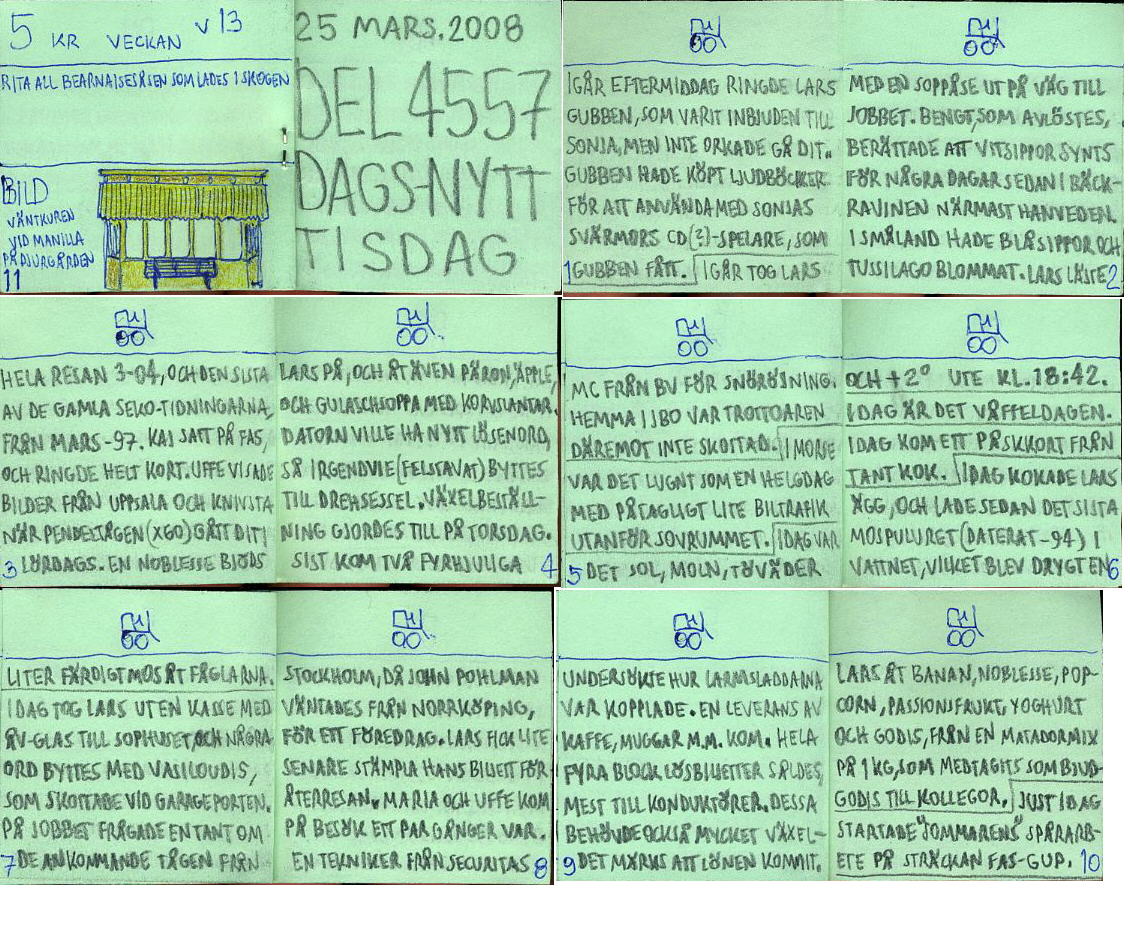 5 KR VECKAN V 13
RITA ALL BEARNAISESÅSEN SOM LADES I SKOGEN
BILD
VÄNTKUREN
VID MANILLA
PÅ DJURGÅRDEN
11
25 MARS.2008
DEL 4557
DAGS-NYTT
TISDAG
IGÅR EFTERMIDDAG RINGDE LARS
GUBBEN, SOM VARIT INBJUDEN TILL
SONJA, MEN INTE ORKADE GÅ DIT.
GUBBEN HADE KÖPT LJUDBÖCKER
FÖR ATT ANVÄNDA MED SONJAS
SVÄRMORS CD(?)-SPELARE, SOM
1 GUBBEN FÅTT. IGÅR TOG LARS
MED EN SOPPÅSE UT PÅ VÄG TILL
JOBBET. BENGT, SOM AVLÖSTES,
BERÄTTADE ATT VITSIPPOR SYNTS
FÖR NÅGRA DAGAR SEDAN I BÄCK-
RAVINEN NÄRMAST HANVEDEN.
I SMÅLAND HADE BLÅSIPPOR OCH
TUSSILAGO BLOMMAT. LARS LÄSTE 2
HELA RESAN 3-04, OCH DEN SISTA
AV DE GAMLA SEKO-TIDNINGARNA,
FRÅN MARS-97. KAJ SATT PÅ FAS,
OCH RINGDE HELT KORT. UFFE VISADE
BILDER FRÅN UPPSALA OCH KNIVSTA
NÄR PENDELTÅGEN (XGO) GÅTT DIT I
3 LÖRDAGS. EN NOBLESSE BJÖDS
LARS PÅ, OCH ÅT ÄVEN PÄRON, ÄPPLE,
OCH GULASCHSOPPA MED KORVSLANTAR.
DATORN VILLE HA NYTT LÖSENORD,
SÅ IRGENDVIE (FELSTAVAT) BYTTES
TILL DREHSESSEL. VÄXELBESTÄLL-
NING GJORDES TILL PÅ TORSDAG.
SIST KOM TVÅ FYRHJULIGA 4
MC FRÅN BV FÖR SNÖRÖJNING.
HEMMA I JBO VAR TROTTOAREN
DÄREMOT INTE SKOTTAD. I MORSE
VAR DET LUGNT SOM EN HELGDAG
MED PÅTAGLIGT LITE BILTRAFIK
UTANFÖR SOVRUMMET. IDAG VAR
5 DET SOL, MOLN, TÖVÄDER
OCH +2° UTE KL. 18:42.
IDAG ÄR DET VÅFFELDAGEN.
IDAG KOM ETT PÅSKKORT FRÅN
TANT KOK. IDAG KOKADE LARS
ÄGG, OCH LADE SEDAN DET SISTA
MOSPULVRET (DATERAT -94) I
VATTNET, VILKET BLEV DRYGT EN 6
LITER FÄRDIGT MOS ÅT FÅGLARNA.
IDAG TOG LARS UT EN KASSE MED
ÅV-GLAS TILL SOPHUSET, OCH NÅGRA
ORD BYTTES MED VASILOUDIS,
SOM SKOTTADE VID GARAGEPORTEN.
PÅ JOBBET FRÅGADE EN TANT OM
7 DE ANKOMMANDE TÅGEN FRÅN
STOCKHOLM, DÅ JOHN POHLMAN
VÄNTADES FRÅN NORRKÖPING,
FÖR ETT FÖREDRAG. LARS FICK LITE
SENARE STÄMPLA HANS BILJETT FÖR
ÅTERRESAN. MARIA OCH UFFE KOM
PÅ BESÖK ETT PAR GÅNGER VAR.
EN TEKNIKER FRÅN SECURITAS 8
UNDERSÖKTE HUR LARMSLADDARNA
VAR KOPPLADE. EN LEVERANS AV
KAFFE, MUGGAR M.M. KOM. HELA
FYRA BLOCK LÖSBILJETTER SÅLDES,
MEST TILL KONDUKTÖRER. DESSA
BEHÖVDE OCKSÅ MYCKET VÄXEL-
9 DET MÄRKS ATT LÖNEN KOMMIT.
LARS ÅT BANAN, NOBLESSE, POP-
CORN, PASSIONSFRUKT, YOGHURT
OCH GODIS, FRÅN EN MATADORMIX
PÅ 1 KG, SOM MEDTAGITS SOM BJUD-
GODIS TILL KOLLEGOR. JUST IDAG
STARTADE "SOMMARENS" SPÅRARB-
ETE PÅ STRÄCKAN FAS-GUP. 10